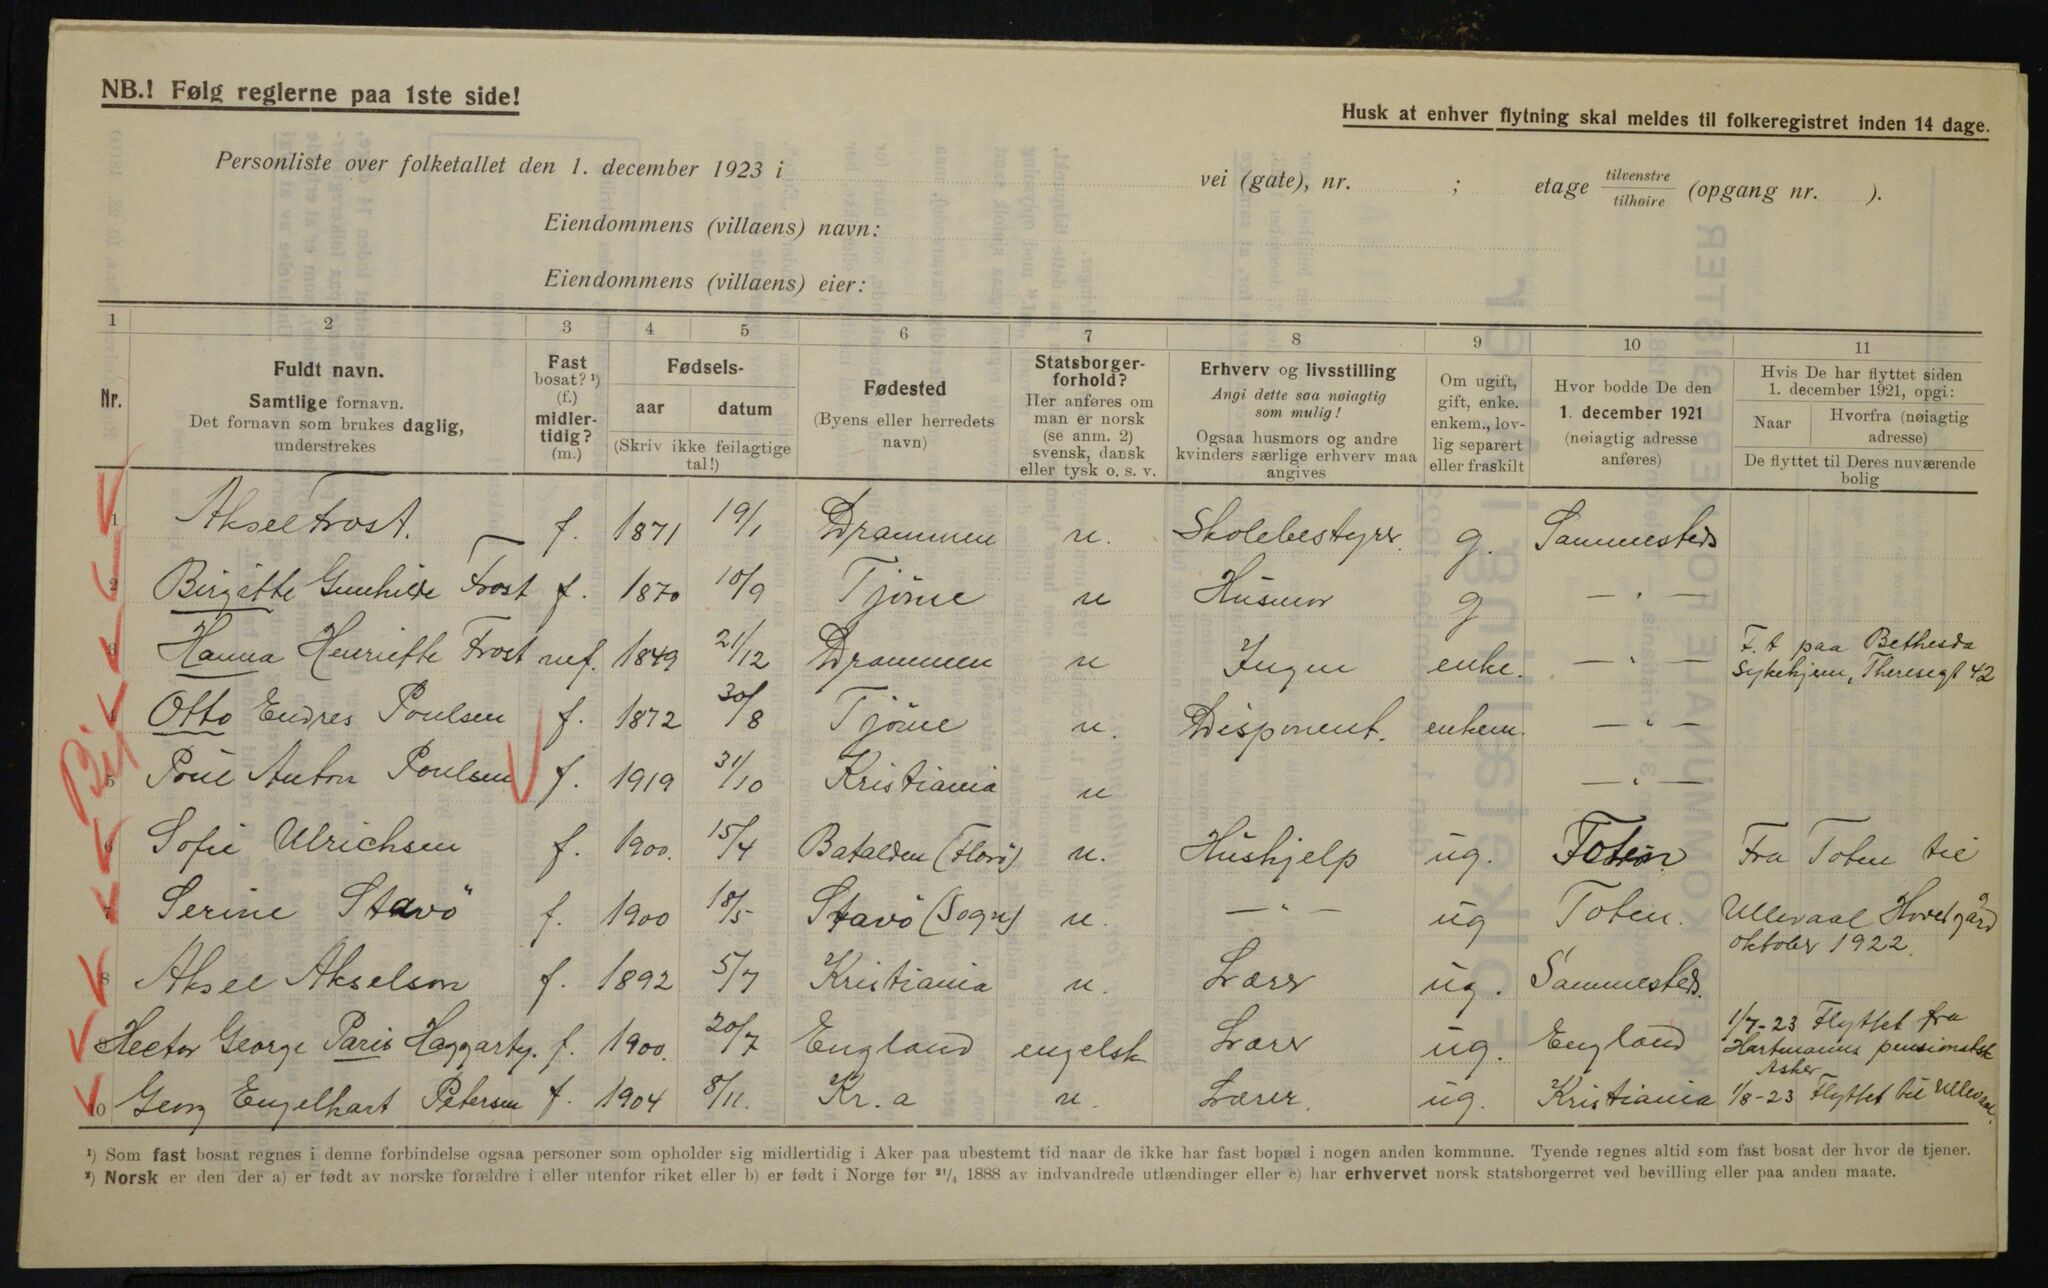 NB.! Følg reglerne paa 1ste side!
Husk at enhver flytning skal meldes til folkeregistret inden 14 dage.
Personliste over folketallet den 1. december 1923 i vei (gate), nr. ; etage tilvenstre tilhøire (opgang nr. ).
Eiendommens (villaens) navn:
Eiendommens (villaens) eier:
1 2 3 4 5 6 7 8 9 10 11
Nr.
Fuldt navn.
Samtlige fornavn.
Det fornavn som brukes daglig,
understrekes
Fast
bosat? ¹)
(f.)
midler-
tidig?
(m.)
Fødsels-
aar datum
(Skriv ikke feilagtige
tal!)
Fødested
(Byens eller herredets
navn)
Statsborger-
forhold?
Her anføres om
man er norsk
(se anm. 2)
svensk, dansk
eller tysk o. s. v.
Erhverv og livsstilling
Angi dette saa nøiagtig
som mulig!
Ogsaa husmors og andre
kvinders særlige erhverv maa
angives
Om ugift,
gift, enke.
enkem., lov-
lig separert
eller fraskilt
Hvor bodde De den
1. december 1921
(nøiagtig adresse
anføres)
Hvis De har flyttet siden
1. december 1921, opgi:
Naar
Hvorfra (nøiagtig
adresse)
De flyttet til Deres nuværende
bolig
1 Aksel Frost. f. 1871 19/1 Drammen n. Skolebestyrer. g. Sammesteds
2 Birgitte Gunhilde Frost f. 1870 10/9 Tjöme n Husmor g — " —
3 Hanna Henriette Frost mf. 1849 21/12 Drammen n Ingen enke. — " — F. t paa Bethesda
Sykehjem, Theresegt 42
4 Otto Endres Poulsen f. 1872 30/8 Tjöme n. Disponent. enkem. — " —
5 Poul Anton Poulsen f. 1919 31/10 Kristiania n — " —
6 Sofie Ulrichsen f. 1900. 15/4 Batalden (Florö) n. Hushjelp ug. Toten Fra Toten til
7 Serine Stavö f. 1900 18/5 Stavö (Sogn) n. — " — ug Toten. Ullevaal Hovedgård
oktober 1922.
8 Aksel Akselson f. 1892 5/7 Kristiania n. Lærer ug. Sammesteds.
Hector George Paris Haggarty. f. 1900. 20/7 England engelsk Lærer ug. England 1/7-23 Flyttet fra
Hartmanns pensionatsk
Asker
10 Georg Engelhart Petersen f. 1904 8/11. Kr.a n. Lærer. ug. Kristiania 1/8-23 Flyttet til Ullevaal.
¹) Som fast bosat regnes i denne forbindelse ogsaa personer som opholder sig midlertidig i Aker paa ubestemt tid naar de ikke har fast bopæl i nogen anden kommune. Tyende regnes altid som fast bosat der hvor de tjener.
²) Norsk er den der a) er født av norske forældre i eller utenfor riket eller b) er født i Norge før ²¹/₄ 1888 av indvandrede utlændinger eller c) har erhvervet norsk statsborgerret ved bevilling eller paa anden maate.